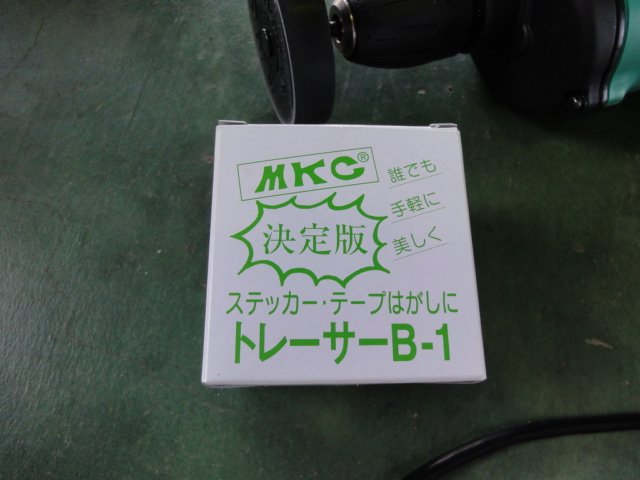 MKC®
誰でも
手軽に
美しく
決定版
ステッカー・テープはがしに
トレーサーB-1